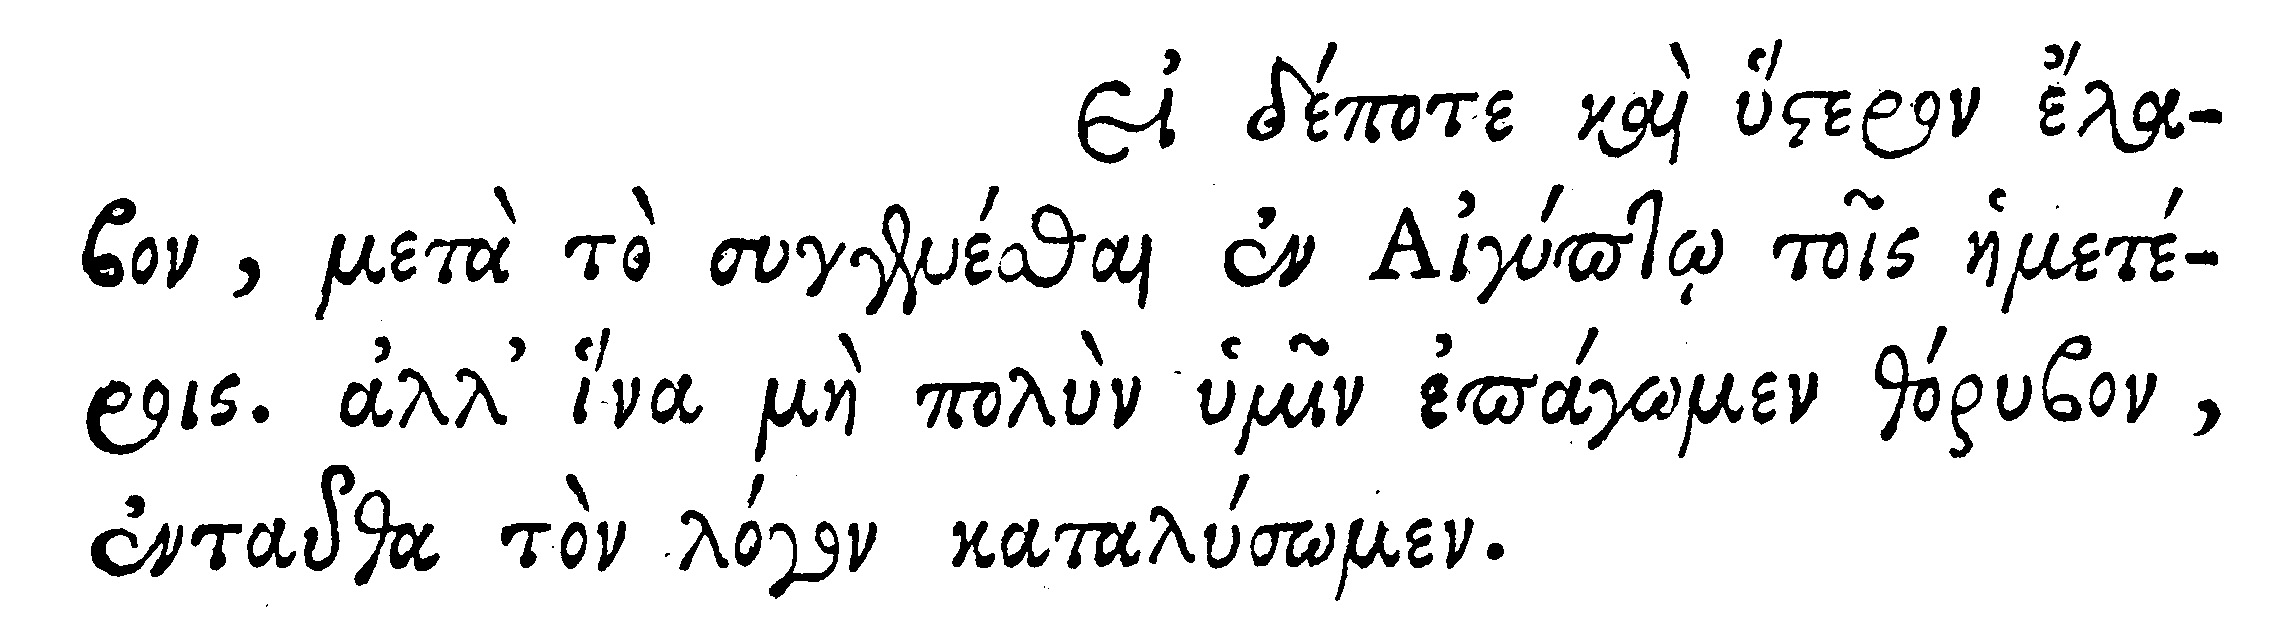 Εἰ δέποτε καὶ ὕστερον ἔλα-
βον, μετὰ τὸ συγγενέσθαι ἐν Αἰγύπτῳ τοῖς ἡμετέ-
ροις. ἀλλ᾽ ἵνα μὴ πολὺν ὑμῖν ἐπάγωμεν θόρυβον,
ἐνταῦθα τὸν λόγον καταλύσωμεν.